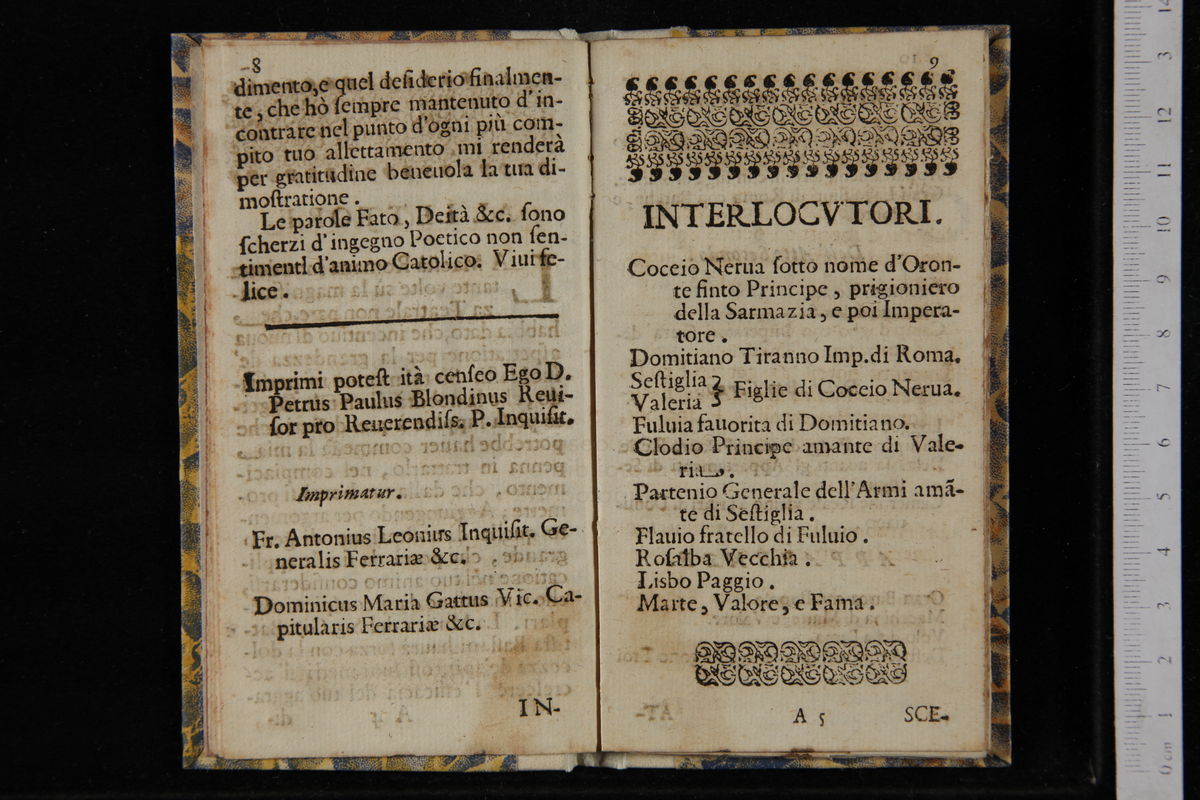 8
dimento, e quel desiderio finalmen-
te, che hò ſempre mantenuto d'in-
contrare nel punto d'ogni più com-
pito tuo allettamento mi renderà
per gratitudine beneuola la tua di-
moſtratione.
Le parole Fato, Deità &c. ſono
ſcherzi d'ingegno Poetico non ſen-
timentI d'animo Catolico. Viui fe-
lice.
Imprimi poteſt ità cenſeo Ego D.
Petrus Paulus Blondinus Reui-
ſor pro Reuerendiſs. P. Inquiſit.
Imprimatur.
Fr. Antonius Leonius Inquiſit. Ge-
neralis Ferrariæ &c.
Dominicus Maria Gattus Vic. Ca-
pitularis Ferrariæ &c.
IN-
9
INTERLOCVTORI.
Coceio Nerua ſotto nome d'Oron-
te finto Principe, prigioniero
della Sarmazia, e poi Impera-
tore.
Domitiano Tiranno Imp. di Roma.
Seſtiglia
Valeria } Figlie di Coceio Nerua.
Fuluia fauorita di Domitiano.
Clodio Principe amante di Vale-
ria.
Partenio Generale dell'Armi amã-
te di Seſtiglia.
Flauio fratello di Fuluio.
Roſalba Vecchia.
Lisbo Paggio.
Marte, Valore, e Fama.
A 5
SCE-